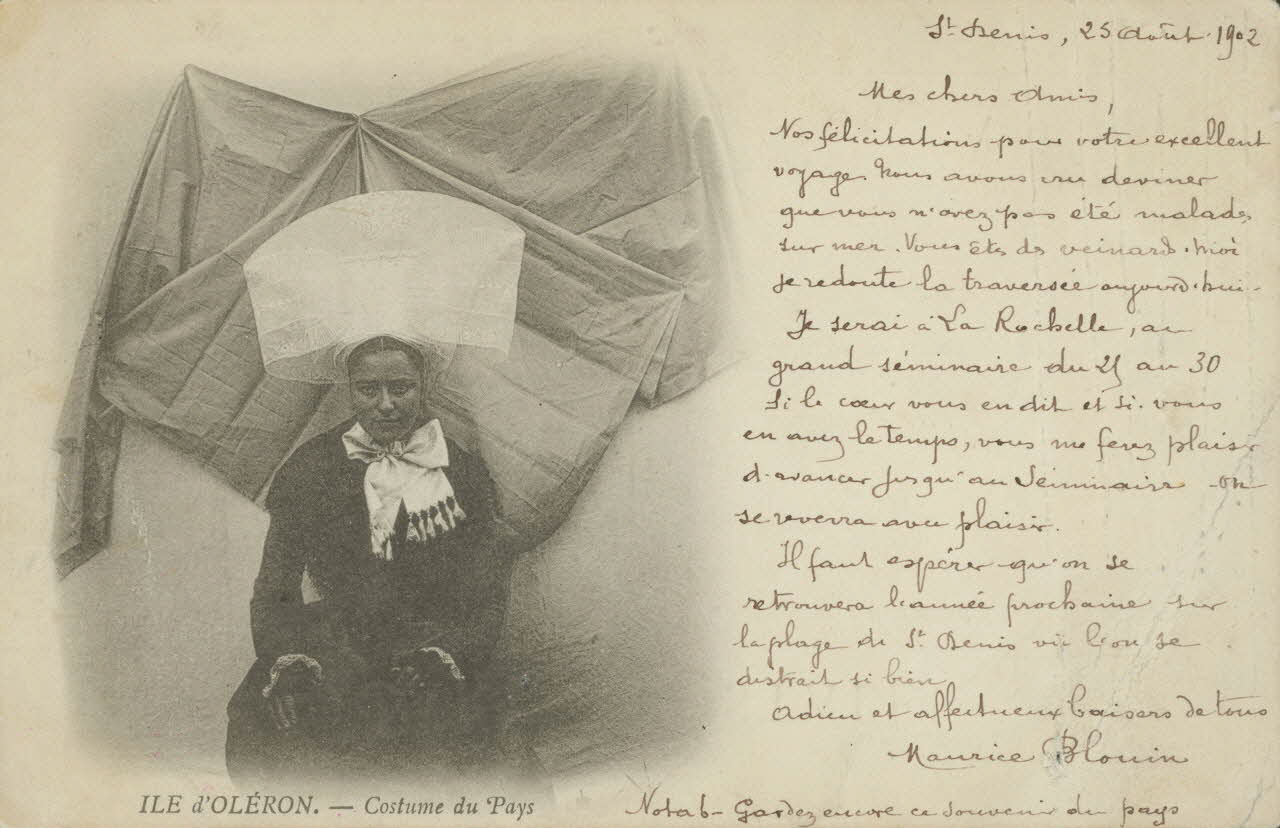 St Denis, 25 Août 1902
Mes chers Amis,
Nos félicitations pour votre excellent
voyage. Nous avons cru deviner
que vous n'avez pas été malades
sur mer. Vous êtes des veinards. Moi
je redoute la traversée aujourd'hui.
Je serai à La Rochelle, au
grand séminaire du 25 au 30
Si le cœur vous en dit et si vous
en avez le temps, vous me ferez plaisir
d'avancer jusqu'au Séminaire on
se reverra avec plaisir.
Il faut espérer qu'on se
retrouvera l'année prochaine sur
la plage de St Denis où l'on se
distrait si bien
Adieu et affectueux baisers de tous
Maurice Blouin
Nota b- Gardez encore ce souvenir du pays
ILE d'OLÉRON. — Costume du Pays